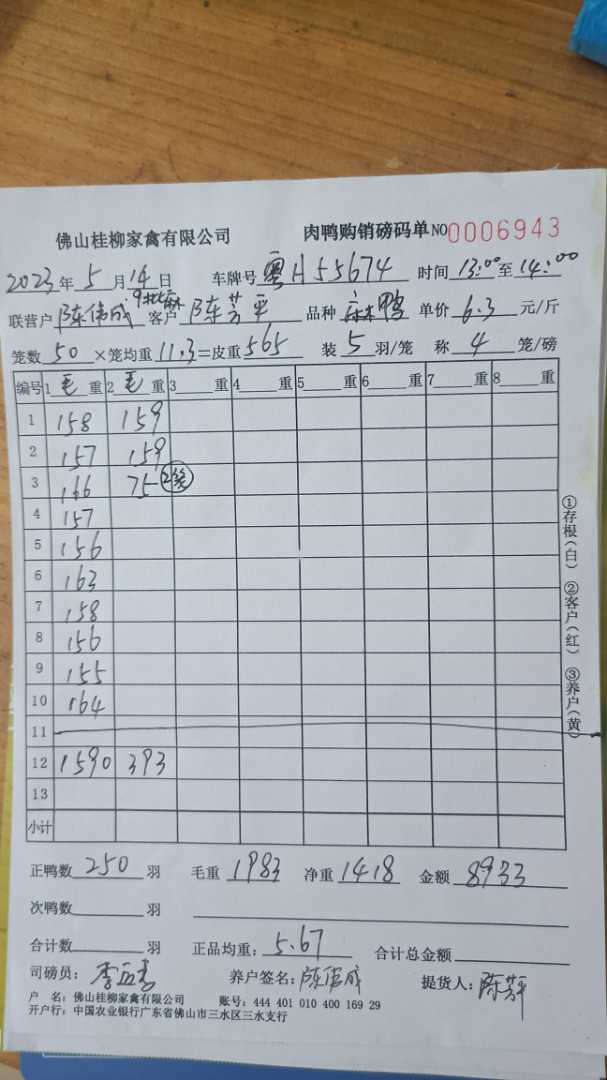 佛山桂柳家禽有限公司 肉鸭购销磅码单 NO0006943
2023年5月14日 车牌号 粤H55674 时间 13:00至14:00
9批麻
联营户 陈伟成 客户 陈芳平 品种 麻鸭 单价 6.3 元/斤
笼数 50 ×笼均重 11.3=皮重 565 装 5 羽/笼 称 4 笼/磅
编号 1 毛 重 2 毛 重 3 重 4 重 5 重 6 重 7 重 8 重
1 158 159
2 157 159
3 166 75 2笼
4 157
5 156
6 163
7 158
8 156
9 155
10 164
11
12 1590 393
13
小计
①存根(白) ②客户(红) ③养户(黄)
正鸭数 250 羽 毛重 1983 净重 1418 金额 8933
次鸭数 羽
合计数 羽 正品均重: 5.67 合计总金额
司磅员: 养户签名: 陈伟成 提货人: 陈芳平
户 名: 佛山桂柳家禽有限公司 账号: 444 401 010 400 169 29
开户行: 中国农业银行广东省佛山市三水区三水支行